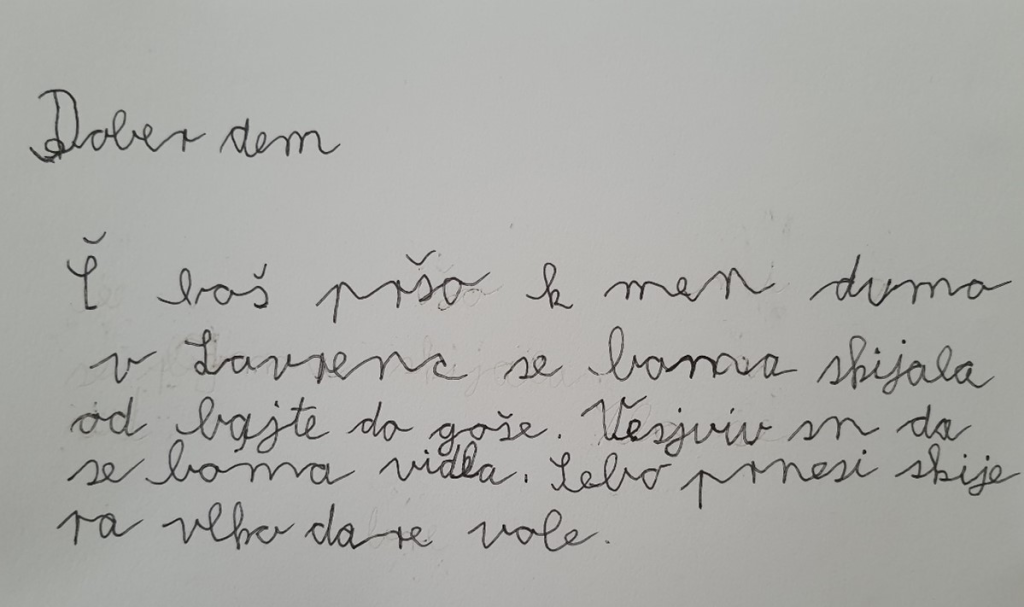 Dober dem
Č boš pršo k men dumo
v Lavrenc se boma skijala
od bajte do goše. Vesjviv sn da
se boma vidla. Sebo prnesi skije
ra vlko da re vole.